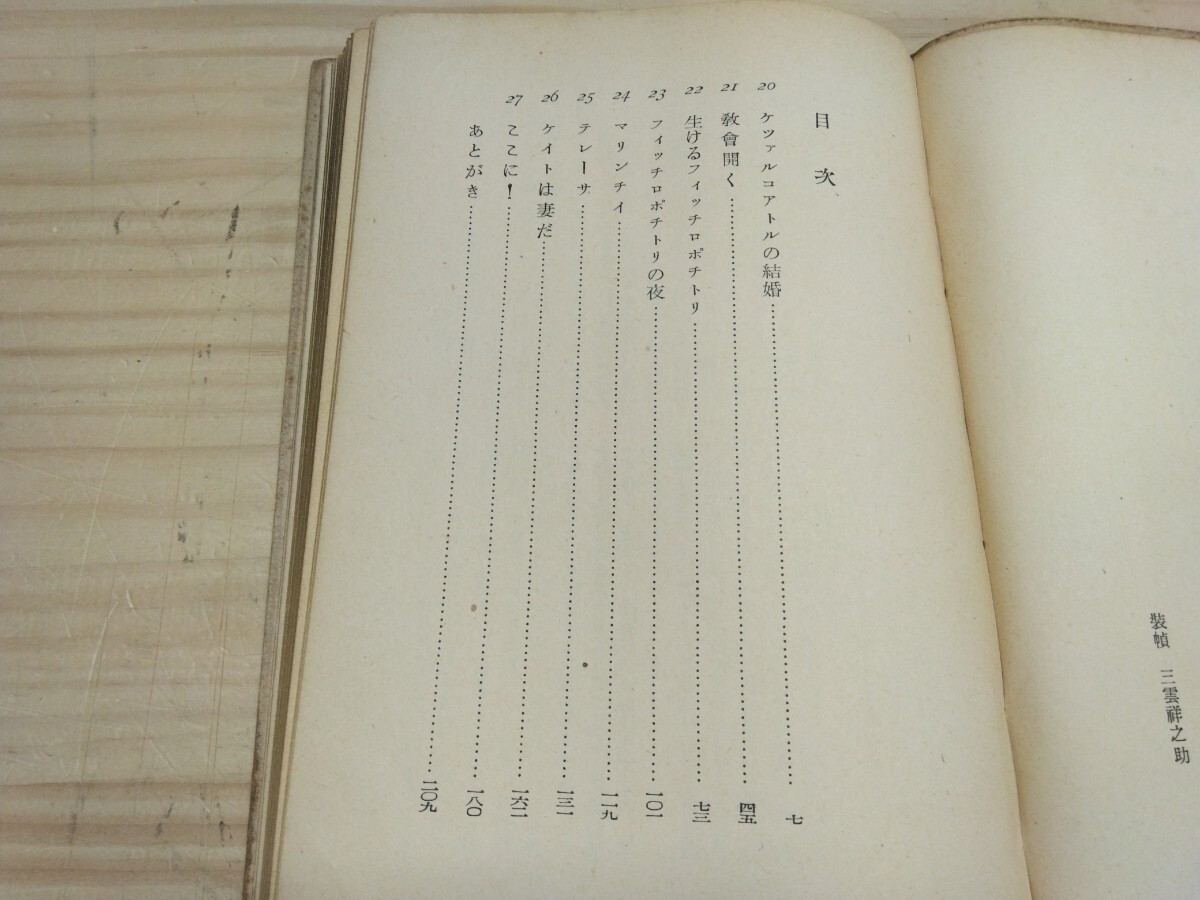 裝幀 三雲祥之助
目次
20 ケツァルコアトルの結婚……七
21 敎會開く……四五
22 生けるフィッチロポチトリ……七三
23 フィッチロポチトリの夜……一〇一
24 マリンチイ……一一九
25 テレーサ……一三一
26 ケイトは妻だ……一六二
27 ここに!……一八〇
あとがき……二〇九